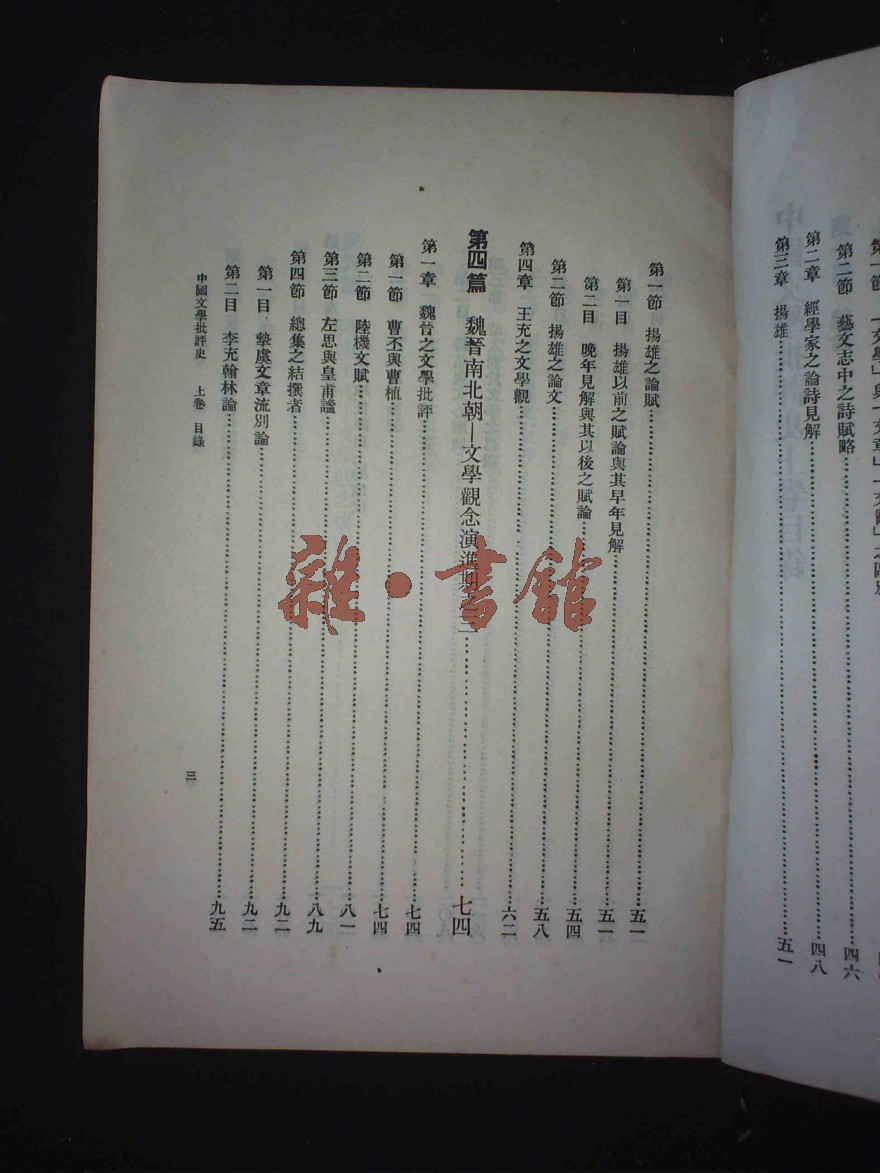 第一節 「文學」與「文章」「文辭」之區別
第二節 藝文志中之詩賦略……四六
第二章 經學家之論詩見解……四八
第三章 揚雄……五一
第一節 揚雄之論賦……五一
第一目 揚雄以前之賦論與其早年見解……五一
第二目 晚年見解與其以後之賦論……五四
第二節 揚雄之論文……五八
第四章 王充之文學觀……六二
第四篇 魏晉南北朝—文學觀念演進期之三……七四
第一章 魏晉之文學批評……七四
第一節 曹丕與曹植……七四
第二節 陸機文賦……八一
第三節 左思與皇甫謐……八九
第四節 總集之結撰者……九二
第一目 摯虞文章流別論……九二
第二目 李充翰林論……九五
中國文學批評史 上卷 目錄
三
雜·書館